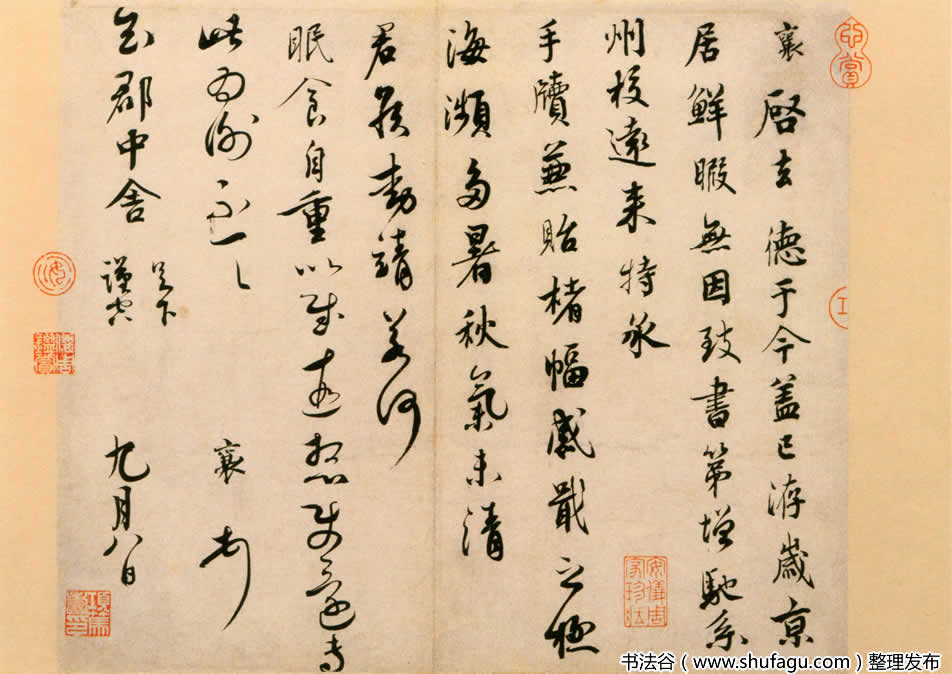 襄啓去德于今蓋已洊歲京
居鮮暇無因致書第增馳系
州校遠來特承
手牘兼貽楮幅感戢之極
海瀕多暑秋氣未清
君侯動靜若何
眠食自重以
此為謝不一一 襄 頓首
知郡中舍足下 謹空 九月八日
安儀周家珍藏
項篤壽印
书法谷（www.shufagu.com）整理发布